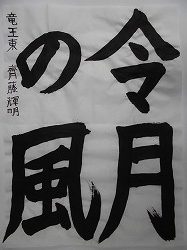 令月
の風
竜王東 齊藤輝明